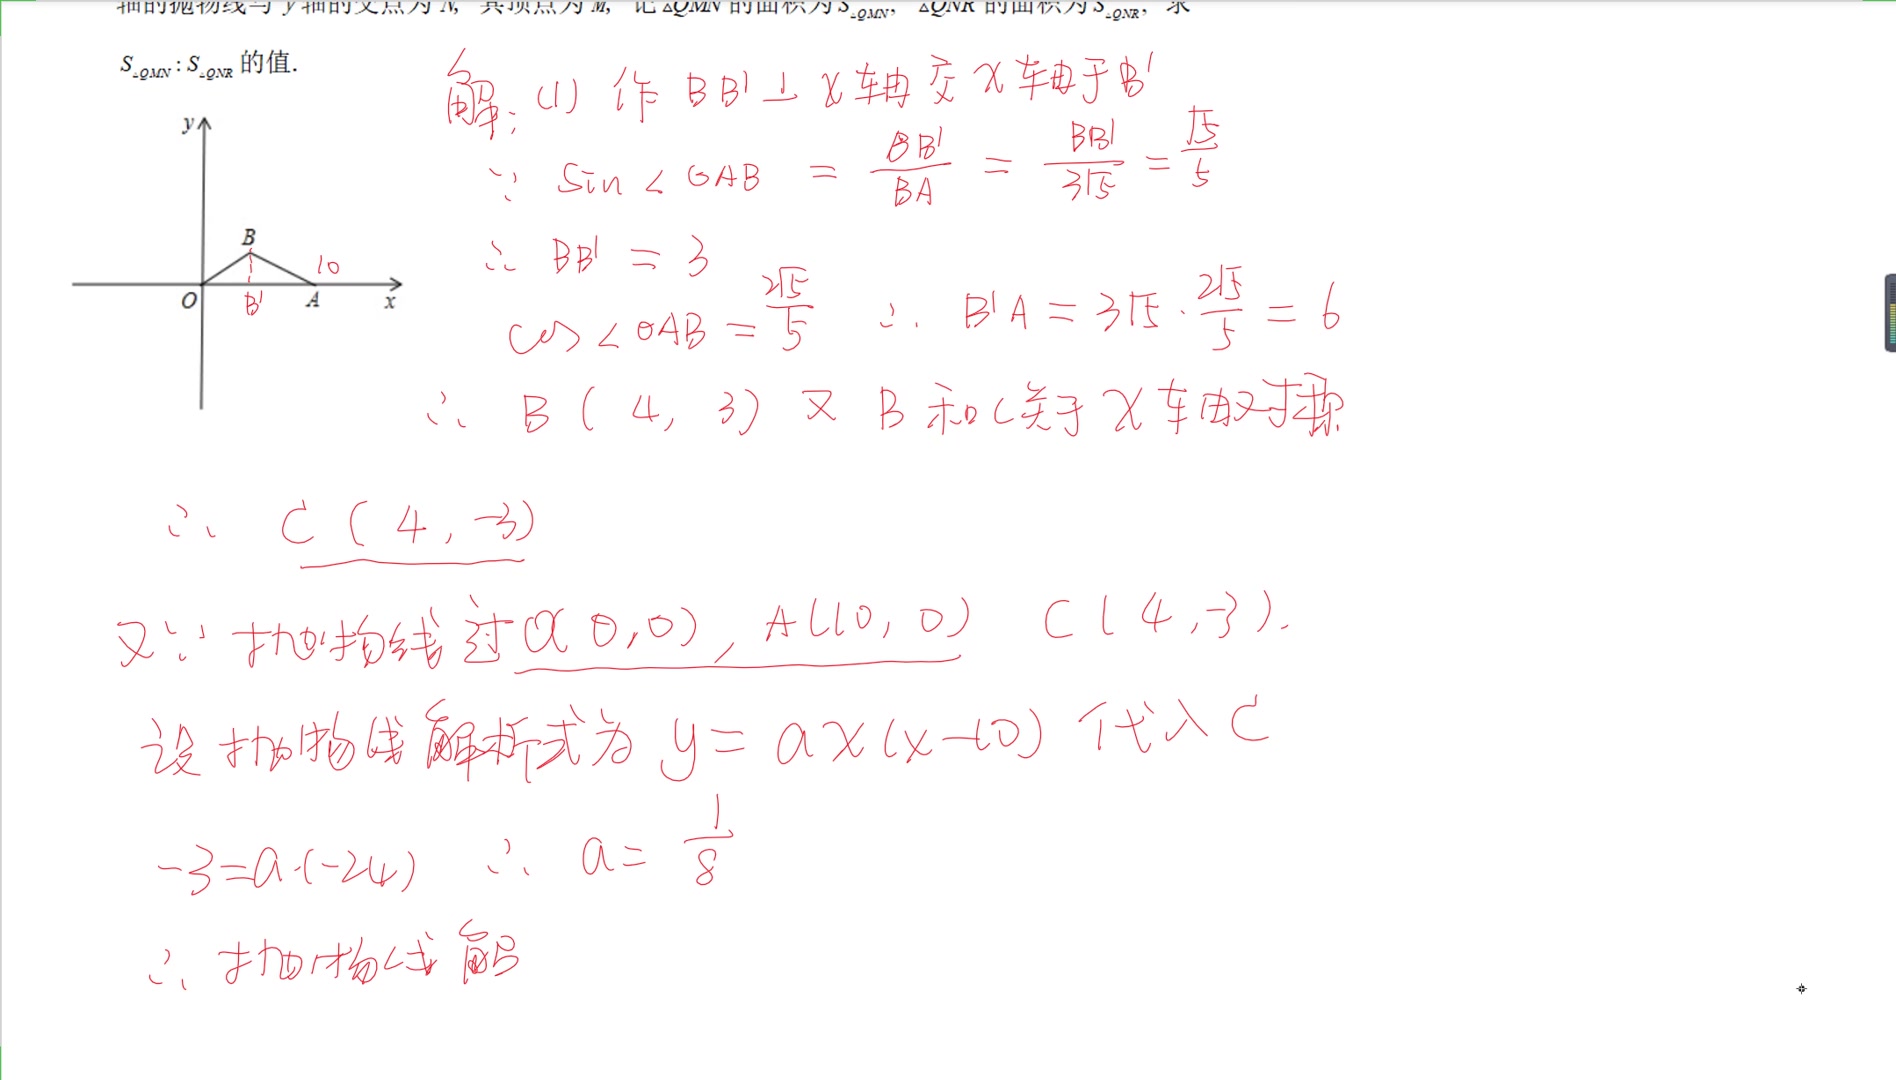 轴的抛物线与 y 轴的交点为 N, 其顶点为 M, 记△QMN 的面积为 S△QMN, △QNR 的面积为 S△QNR, 求
S△QMN : S△QNR 的值.
解: (1) 作 BB' ⊥ x轴 交 x轴于B'
∵ Sin∠OAB = BB'/BA = BB'/3√5 = √5/5
∴ BB' = 3
cos∠OAB = 2√5/5 ∴ B'A = 3√5 · 2√5/5 = 6
∴ B(4, 3) 又 B和C关于x轴对称
y
B
10
O
B'
A
x
∴ C(4, -3)
又∵ 抛物线过O(0,0), A(10, 0) C(4,-3).
设抛物线解析式为 y = ax(x-10) 代入 C
-3=a·(-24) ∴ a= 1/8
∴ 抛物线解